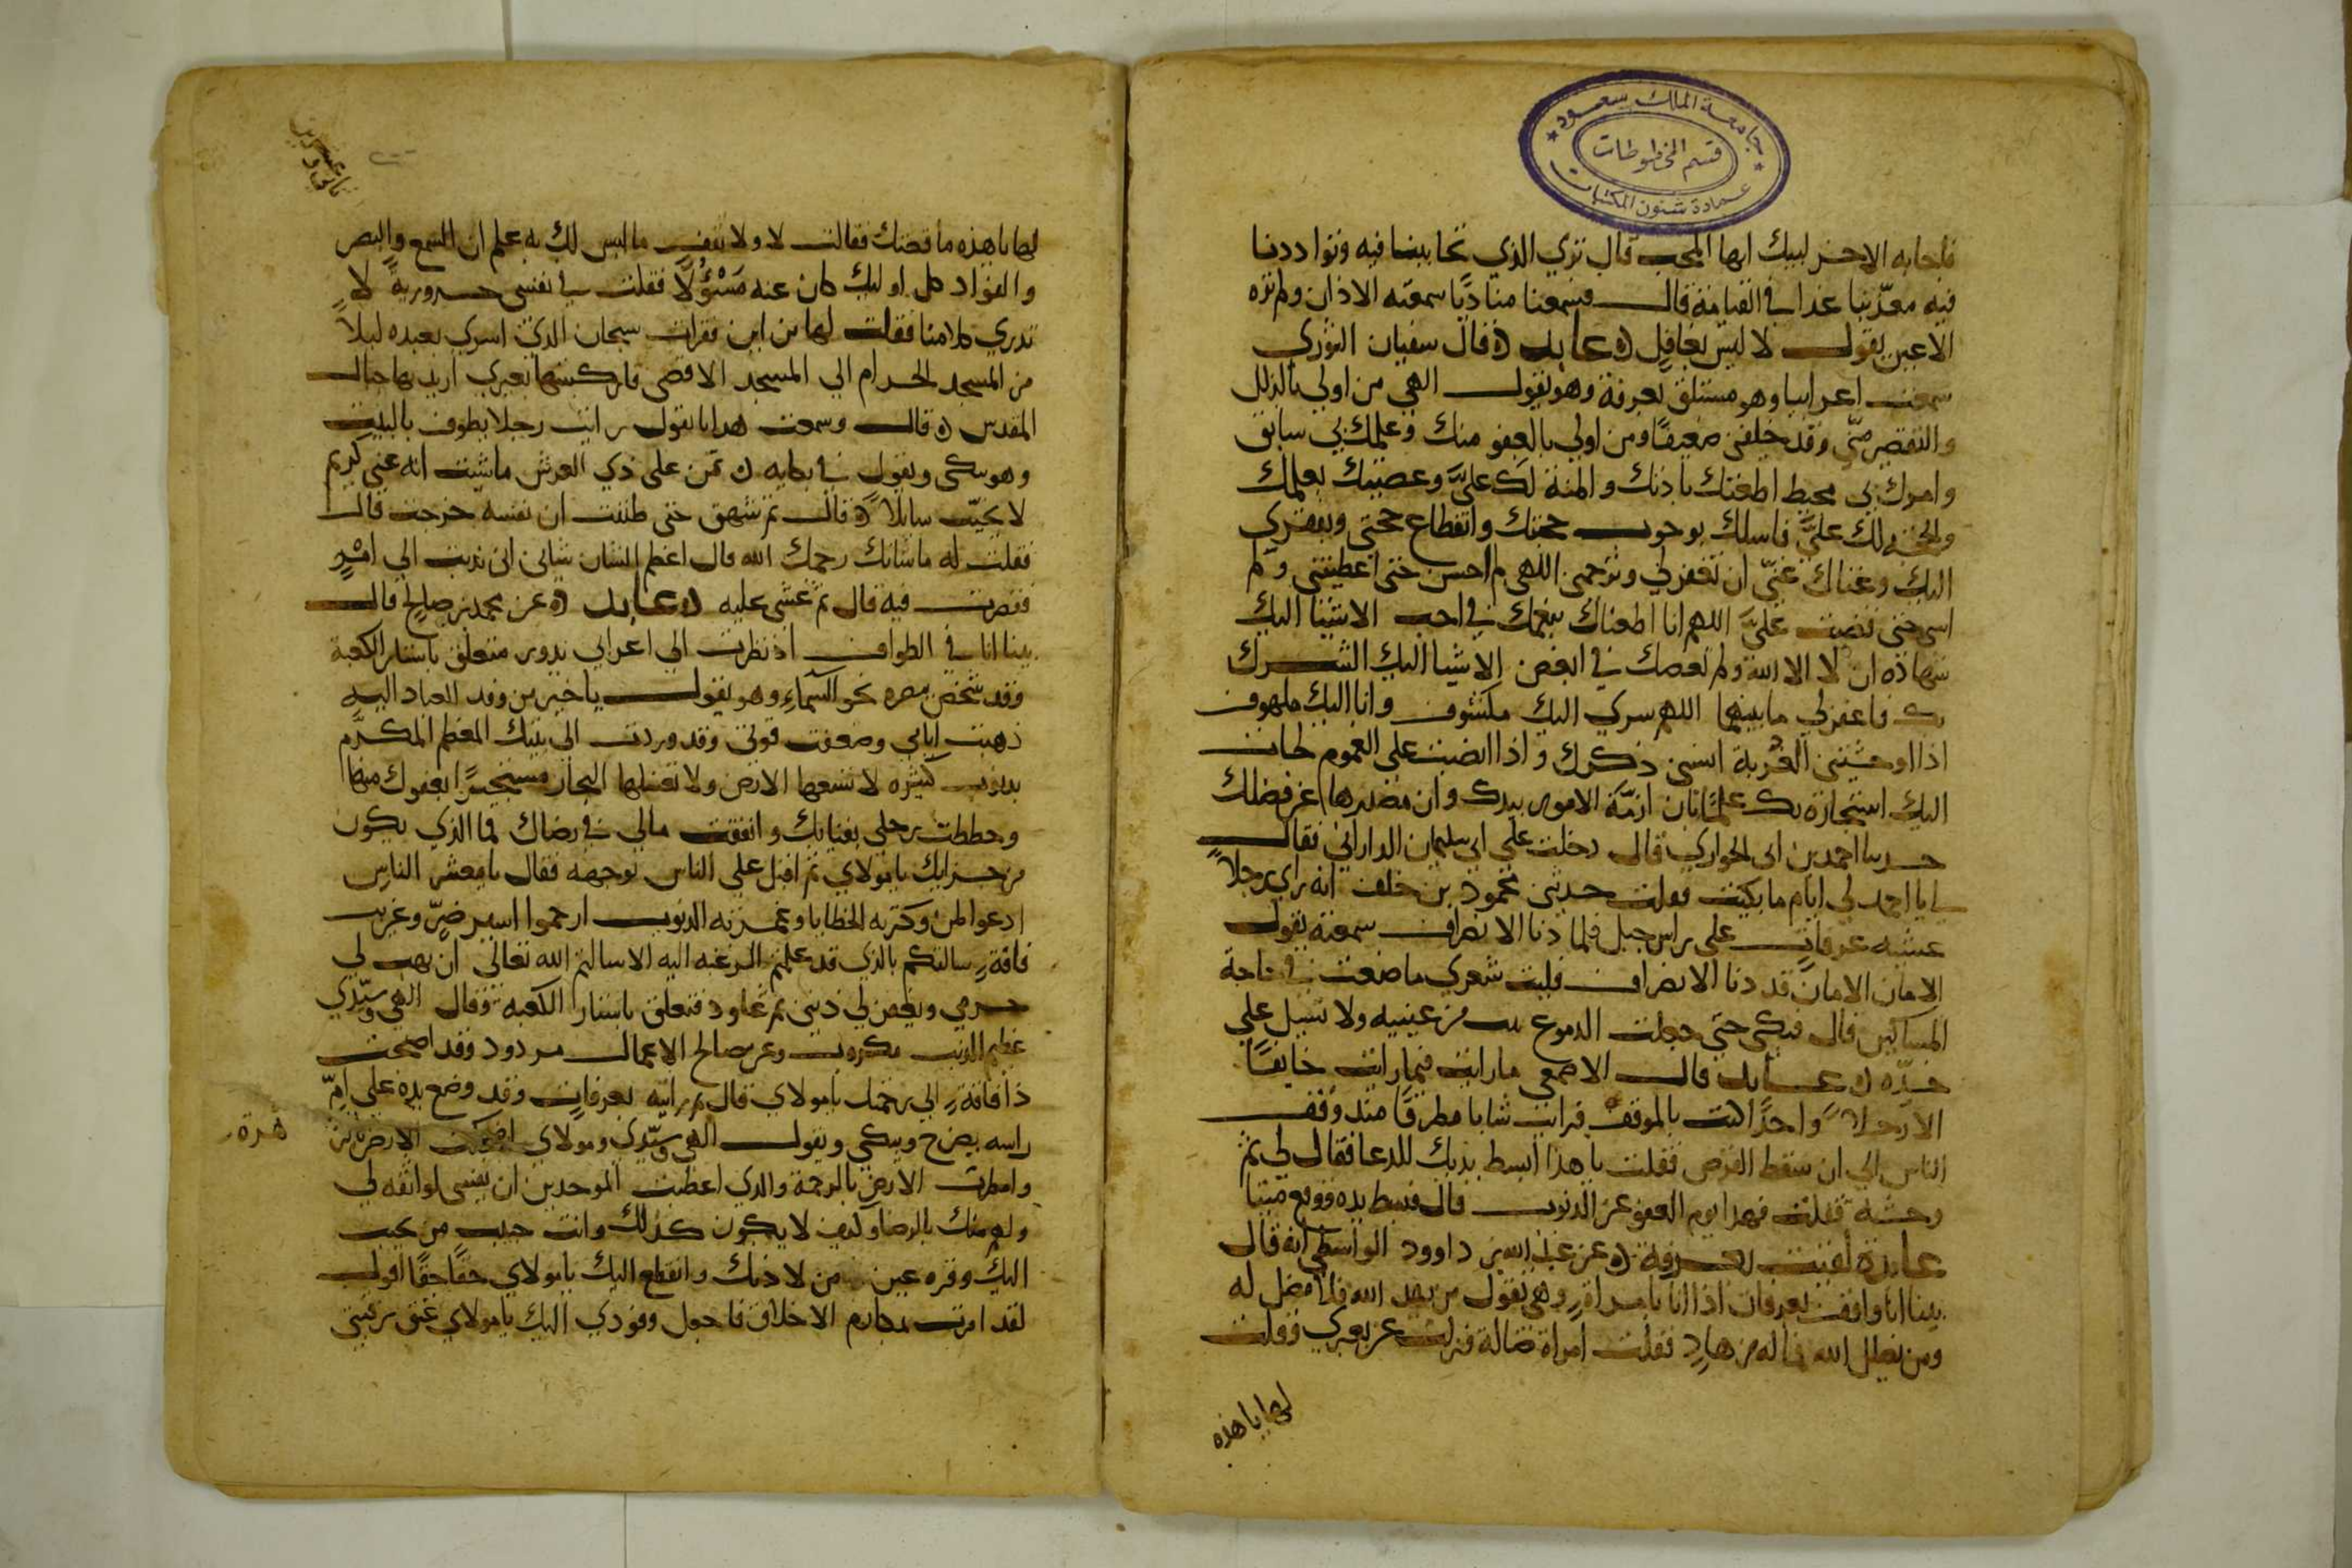 جامعة الملك سعود
قسم المخطوطات
عمادة شئون المكتبات
فاجابه الاخر لبيك ايها المحب قال تري الذي تحاببنا فيه وتواددنا
فيه معذبنا غدا في القيامة قال فسمعنا مناديًا سمعته الاذان ولم تره
الاعين يقول لا ليس بفاعل عابد قال سفيان الثوري
سمعت اعرابيا وهو مستلق بعرفة وهو يقول الهي من اولي بالزلل
والتقصير منّي وقد خلقتني ضعيفًا ومن اولي بالعفو منك وعلمك بي سابق
وامرك بي محيط اطعتك باذنك والمنة لك عليَّ وعصيتك بعلمك
والحجة لك عليَّ فاسلك بوجوب حجتك وانقطاع حجتي وبفقري
اليك وغناك عنّي ان تغفر لي وترحمني اللهم لم احسن حتى اعطيتني ولم
اسي حتى قضيت عليَّ اللهم انا اطعناك بنعمك في احب الاشيا اليك
شهادة ان لا اله الا الله ولم نعصك في ابغض الاشيا اليك الشرك
بك فاغفر لي ما بينهما اللهم سري اليك مكشوف وانا اليك ملهوف
اذا اوحشتني الغربة انسني ذكرك واذا اصبت علي الغموم لجات
اليك استجارة بك علما بان ازمّة الامور بيدك وان مصدرها عن قضائك
حدثنا احمد بن ابي الحواري قال دخلت علي ابي سليمان الداراني فقال
لي يا احمد لي ايام ما بكيت فقلت حدثني محمود بن خلف انه راي رجلاً
عشية عرفات علي راس جبل فلما دنا الانصراف سمعته يقول
الامان الامان قد دنا الانصراف فليت شعري ما صنعت في حاجة
المساكين قال فبكى حتى جعلت الدموع من عينيه ولا تسيل علي
خدّه عابد قال الاصمعي ما رايت فيمن رايت خايفًا
الا رجلاً واحدًا كنت بالموقف فرايت شابا مطرقًا منذ وقف
الناس الي ان سقط القرص فقلت يا هذا ابسط يديك للدعا فقال لي ثم
وحشة فقلت فهذا يوم العفو عن الذنوب قال فبسط يده فوقع ميتا
عابدة لقيت بعرفة عن عبد الله بن داوود الواسطي انه قال
بينا انا واقف بعرفات اذا انا بامراة وهي تقول من يهد الله فلا مضل له
ومن يضلل الله فما له من هادٍ فقلت امراة ضالة فنزلت عن بعيري وقلت
لها يا هذه
لها يا هذه ما قصتك فقالت لا ولا تقف ما ليس لك به علم ان السمع والبصر
والفواد كل اوليك كان عنه مَسْؤُلًا فقلت في نفسي حرورية لا
تدري كلامنا فقلت لها من اين فقرات سبحان الذي اسري بعبده ليلاً
من المسجد الحرام الي المسجد الاقصى فاركبتها بعيري اريد بها جبال
المقدس قال وسمعت هدابا يقول رايت رجلا يطوف بالبيت
وهو يبكى ويقول في بكايه تمن على ذي العرش ما شيت انه غني كريم
لا يخيّب سايلاً قال ثم شهق حتى ظننت ان نفسه خرجت قال
فقلت له ما شانك رحمك الله قال اعظم الشان شاني اني ندبت الي امرٍ
فقصرت فيه قال ثم غشي عليه عابد عن محمد بن صالح قال
بينا انا في الطواف اذ نظرت الي اعرابي بدوي متعلق باستار الكعبة
وقد شخص بصره نحو السماء وهو يقول يا خير من وفد العباد اليه
ذهبت ايامي وضعفت قوتي وقد وردت الى بيتك المعظم المكرّم
بذنوب كثيره لا تسعها الارض ولا تغسلها البحار مستجيرًا بعفوك منها
وحططت رحلي بفنايك وانفقت مالي في رضاك فما الذي يكون
من جزايك يا مولاي ثم اقبل علي الناس بوجهه فقال يا معشر الناس
ادعوا لمن وكزته الخطايا وغمرته الذنوب ارحموا اسير ضرّ وغريب
فاقةٍ سالتكم بالذي قد علمتم الرغبة اليه الا سالتم الله تعالى ان يهب لي
جرمي ويغفر لي ذنبي ثم عاود فتعلق باستار الكعبة وقال الهي وسيّدي
عظيم الذنب مكروب وعن صالح الاعمال مردود وقد اصبحت
ذا فاقةٍ الي رحمتك يا مولاي قال ثم رايته بعرفات وقد وضع يده علي امّ
راسه يصرخ ويبكى ويقول الهي وسيّدي ومولاي اضحكت الارض
وامطرت الارض بالرحمة والذي اعطيت الموحدين ان نفسى لواثقه لي
ولهم منك بالرضا وكيف لا يكون كذلك وانت حبيب من تحبب
اليك وقره عين من لاذ بك وانقطع اليك يا مولاي حقًا حقًا اقول
لقد امرت بمكارم الاخلاق فاجعل وفودي اليك يا مولاي عتق رقبتي